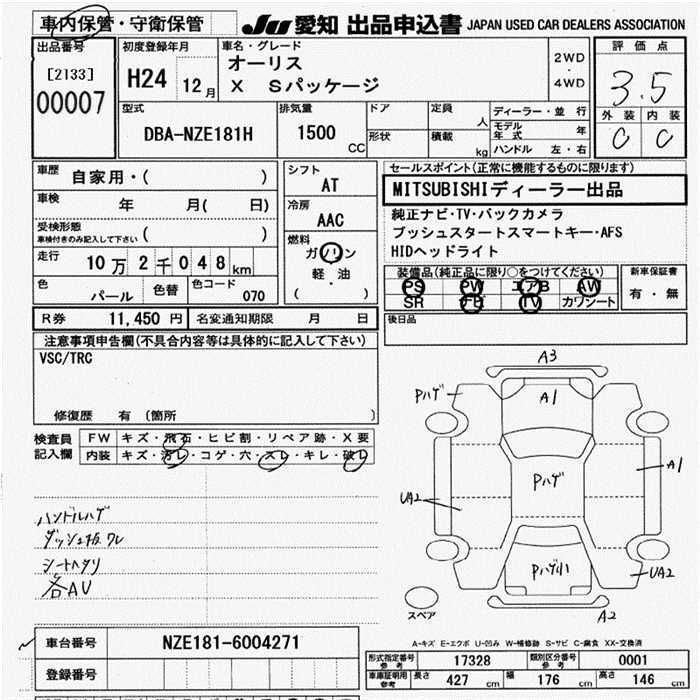 車内保管・守衛保管
JU 愛知 出品申込書 JAPAN USED CAR DEALERS ASSOCIATION
出品番号
[2133]
00007
初度登録年月
H24 12月
車名・グレード
オーリス
X Sパッケージ
2WD
・
4WD
評価点
3.5
外装 内装
C C
型式
DBA-NZE181H
排気量
1500
CC
ドア
形状
定員
人
積載
kg
ディーラー・並行
モデル年式 年
ハンドル 左・右
車歴 自家用・( )
車検 年 月( 日)
受検形態
車検付きのみ記入して下さい ( )
走行 10万2千048km
色 パール 色替 色コード 070
シフト
AT
冷房
AAC
燃料
ガソリン
軽・油
( )
セールスポイント(正常に機能するものに限ります)
MITSUBISHIディーラー出品
純正ナビ・TV・バックカメラ
プッシュスタートスマートキー・AFS
HIDヘッドライト
装備品(純正品に限り○をつけてください)
PS PW エアB AW
SR ナビ TV カワシート
新車保証書
有・無
後日品
R券 11,450 円 名変通知期限 月 日
注意事項申告欄(不具合内容等は具体的に記入して下さい)
VSC/TRC
修復歴 有 (箇所 )
検査員
記入欄
FW キズ・飛石・ヒビ割・リペア跡・X要
内装 キズ・汚レ・コゲ・穴・スレ・キレ・破レ
ハンドルハゲ
ダッシュ板ワレ
シートヘタリ
各AU
A3
Pハゲ
A1
A1
Pハゲ
UA2
Pハゲ小
UA2
A2
スペア
A-キズ E-エクボ U-凹み W-補修跡 S-サビ C-腐食 XX-交換済
車台番号 NZE181-6004271
登録番号
形式指定番号
参考
17328
類別区分番号
参考
0001
車庫証明用
参考
長さ 427 cm 幅 176 cm 高さ 146 cm